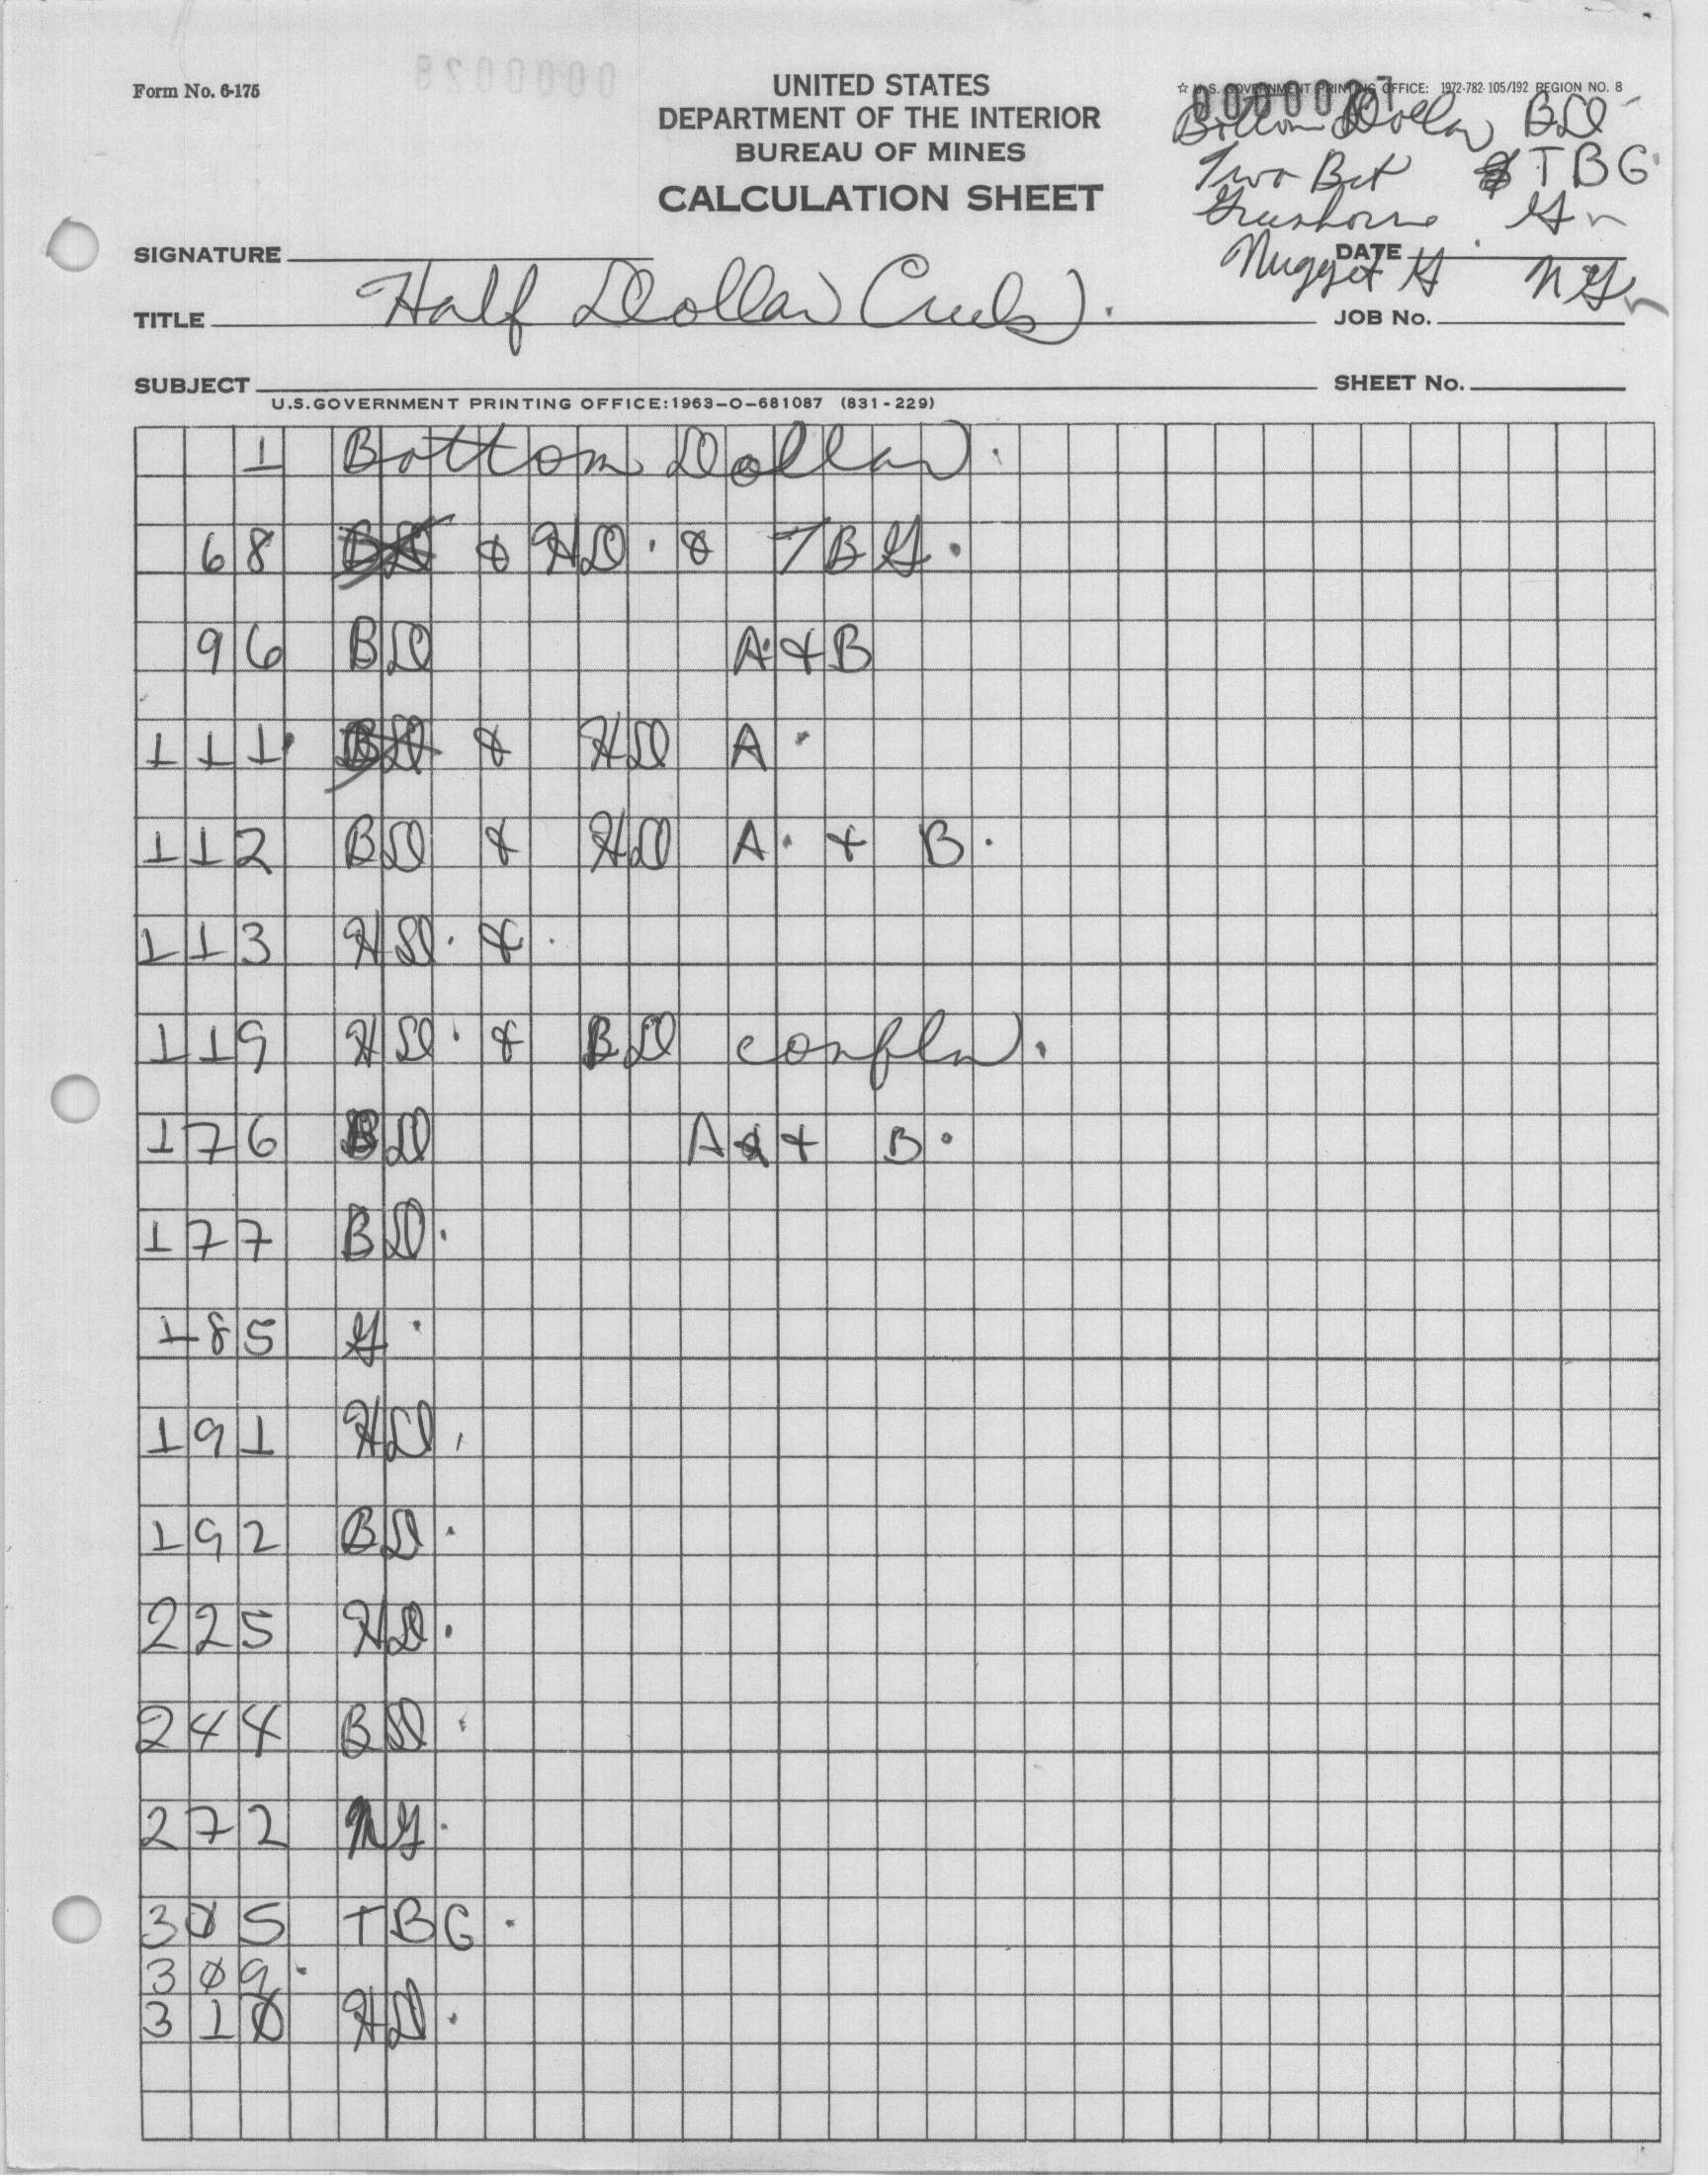 Form No. 6-175
0000028
UNITED STATES
DEPARTMENT OF THE INTERIOR
BUREAU OF MINES
CALCULATION SHEET
☆ U.S. GOVERNMENT PRINTING OFFICE: 1972-782-105/192 REGION NO. 8
Bottom Dollar BD
Two Bit TBG
Greenhorn G
Nugget G NG
SIGNATURE
DATE
TITLE Half Dollar Creek.
JOB No.
SUBJECT
SHEET No.
U.S.GOVERNMENT PRINTING OFFICE:1963-O-681087 (831-229)
1 Bottom Dollar.
68 BD & HD. & TBG.
96 BD A + B
111. BD & HD A.
112 BD & HD A. + B.
113 HD. &.
119 HD. & BD
176 BD A + B.
177 BD.
185 G.
191 HD.
192 BD.
225 HD.
244 BD.
272 NG.
305 TBG.
309.
310 HD.